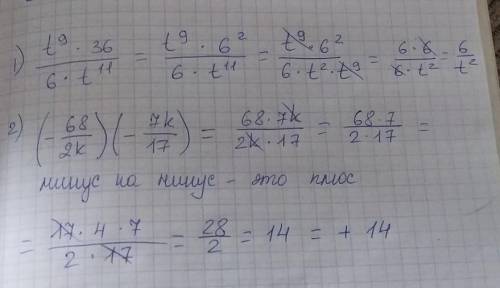 1) t⁹ · 36 / 6 · t¹¹ = t⁹ · 6² / 6 · t¹¹ = t⁹ · 6² / 6 · t² · t⁹ = 6 · 6 / 6 · t² = 6 / t²
2) (− 68 / 2k) (− 7k / 17) = 68 · 7k / 2k · 17 = 68 · 7 / 2 · 17 =
минус на минус – это плюс
= 17 · 4 · 7 / 2 · 17 = 28 / 2 = 14 = + 14